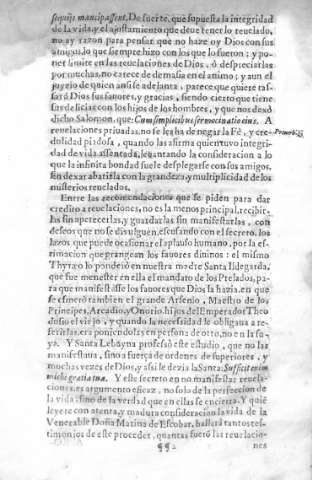 sequijs mancipassent. De suerte, que supuesta la integridad
de la vida, y el ajustamiento que deue tener lo reuelado,
no ay razon para pensar que no haze oy Dios con sus
amigos lo que siempre hizo con los que lo fueron; y po-
ner limite en las reuelaciones de Dios, ò despreciarlas
por muchas, no carece de demasia en el animo; y aun el
juyzio de quien ansi se adelanta, parece que quiere tas-
sar à Dios sus fauores, y gracias, siendo cierto que tiene
sus delicias con los hijos de los hombres, y que nos dexò
dicho Salomon, que Cum simplicibus sermocinatio eius. A
reuelaciones priuadas no se les ha de negar la Fè, y cre-
dulidad piadosa, quando las afirma quien tuvo integri-
dad de vida assentada, leuantando la consideracion a lo
que la infinita bondad suele desplegarse con sus amigos,
sin dexar abatirla con la grandeza, y multiplicidad de los
misterios reuelados.
Entre las recomendaciones que se piden para dar
credito a reuelaciones, no es la menos principal, recibir-
las sin apetecerlas, y guardarlas sin manifestarlas, con
deseos que no se divulguen, escusando con el secreto, los
lazos que puede ocasionar el aplauso humano, por la es-
timacion que grangean los fauores diuinos: el mismo
Thyrxo lo ponderò en nuestra madre Santa Ildegarda,
que fue menester en ella el mandato de los Prelados, pa-
ra que manifestasse los fauores que Dios la hazia, en que
se esmerò tambien el grande Arsenio, Maestro de los
Principes, Arcadio, y Onorio, hijos del Emperador Theo
dosio el viejo, y quando la necessidad le obligaua a re-
ferirlas, era poniendolas en persona de otro, no en la su-
ya. Y Santa Lebuyna professò este estudio, que no las
manifestaua, sino a fuerça de ordenes de superiores, y
muchas vezes de Dios, y assi le dezia la Santa: Sufficit enim
mihi gratia tua. Y este secreto en no manifestar reuela-
ciones, es argumento eficaz, no solo de la perfeccion de
la vida, sino de la verdad que en ellas se encierra. Y quiē
leyere con atenta, y madura consideracion la vida de la
Venerable Doña Marina de Escobar, hallarà tantos tes-
timonios de este proceder, quantas fuerō las reuelacio-
¶¶2 nes